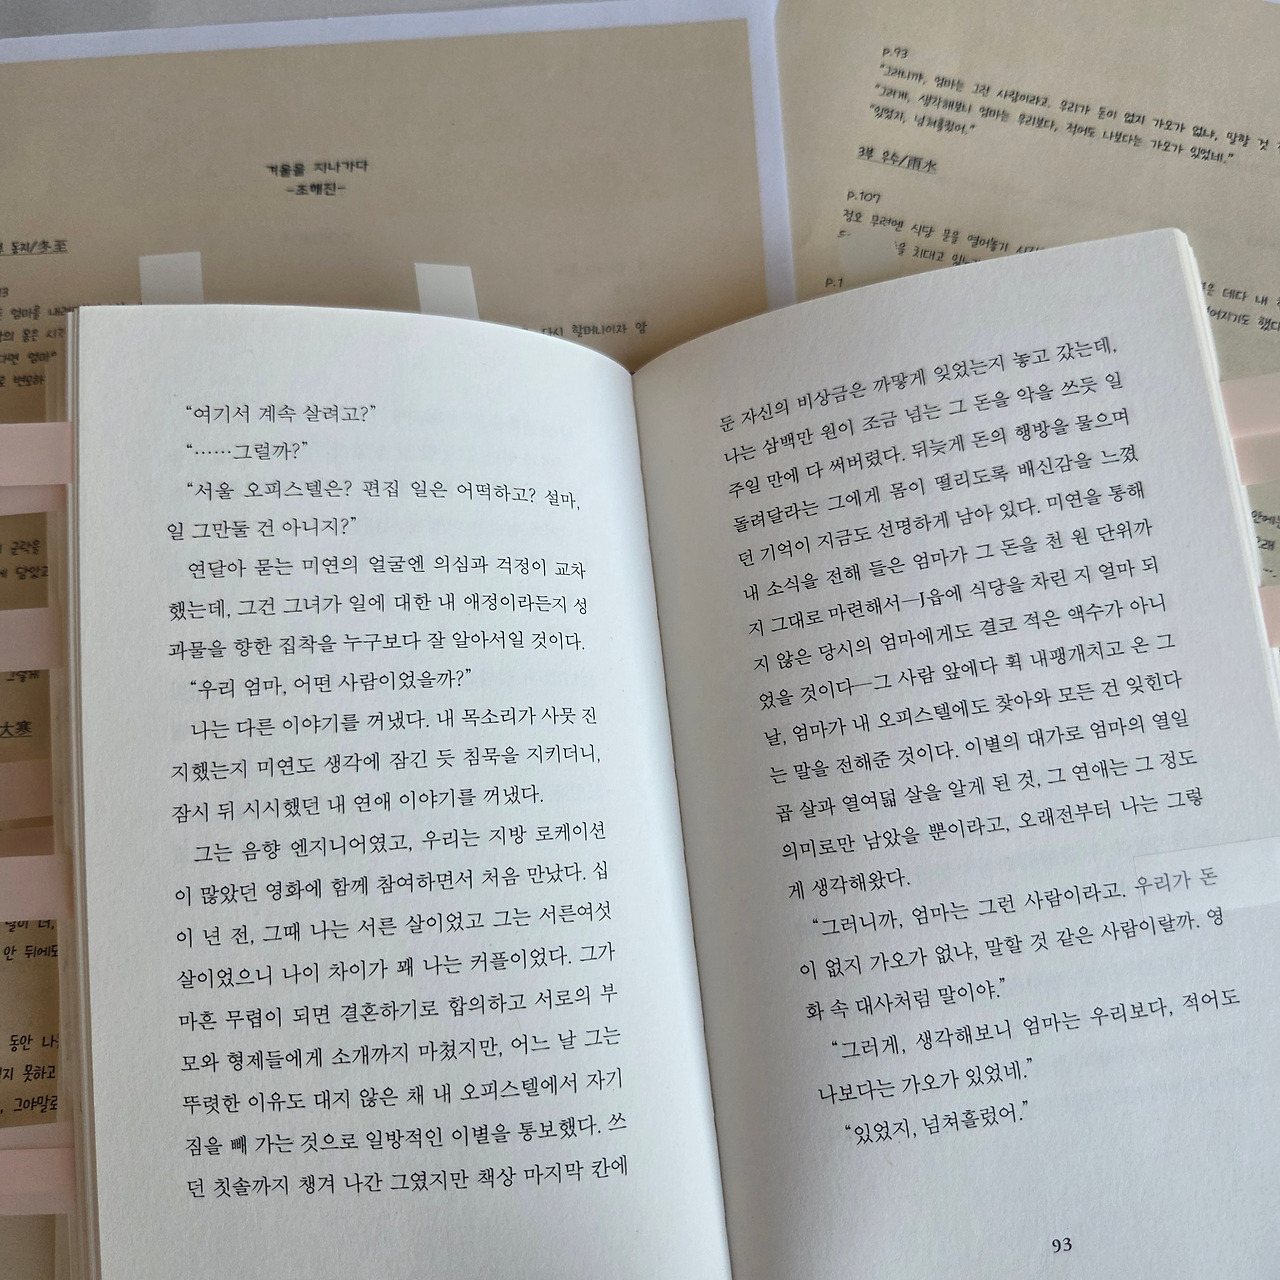 겨울을 지나가다
-조해진-
동지/冬至
엄마를
다시 할머니이자 암
몸은
다면 엄마
p.93
"그러니까, 엄마는 그런 사람이라고. 우리가 돈이 없지 가오가 없냐, 말할 것
"그러게, 생각해보니 엄마는 우리보다, 적어도 나보다는 가오가 있었네."
"있었지, 넘쳐흘렀어."
3부 우수/雨水
p.107
정오 무렵엔 식당 문을 열어놓기
을 치대고
p.1
은 데다 내
어지기도 했다
大寒
안 뒤에도
동안 나
지 못하고
그야말로
“여기서 계속 살려고?”
“……그럴까?”
“서울 오피스텔은? 편집 일은 어떡하고? 설마,
일 그만둘 건 아니지?”
연달아 묻는 미연의 얼굴엔 의심과 걱정이 교차
했는데, 그건 그녀가 일에 대한 내 애정이라든지 성
과물을 향한 집착을 누구보다 잘 알아서일 것이다.
“우리 엄마, 어떤 사람이었을까?”
나는 다른 이야기를 꺼냈다. 내 목소리가 사뭇 진
지했는지 미연도 생각에 잠긴 듯 침묵을 지키더니,
잠시 뒤 시시했던 내 연애 이야기를 꺼냈다.
그는 음향 엔지니어였고, 우리는 지방 로케이션
이 많았던 영화에 함께 참여하면서 처음 만났다. 십
이 년 전, 그때 나는 서른 살이었고 그는 서른여섯
살이었으니 나이 차이가 꽤 나는 커플이었다. 그가
마흔 무렵이 되면 결혼하기로 합의하고 서로의 부
모와 형제들에게 소개까지 마쳤지만, 어느 날 그는
뚜렷한 이유도 대지 않은 채 내 오피스텔에서 자기
짐을 빼 가는 것으로 일방적인 이별을 통보했다. 쓰
던 칫솔까지 챙겨 나간 그였지만 책상 마지막 칸에
둔 자신의 비상금은 까맣게 잊었는지 놓고 갔는데,
나는 삼백만 원이 조금 넘는 그 돈을 악을 쓰듯 일
주일 만에 다 써버렸다. 뒤늦게 돈의 행방을 물으며
돌려달라는 그에게 몸이 떨리도록 배신감을 느꼈
던 기억이 지금도 선명하게 남아 있다. 미연을 통해
내 소식을 전해 들은 엄마가 그 돈을 천 원 단위까
지 그대로 마련해서—J읍에 식당을 차린 지 얼마 되
지 않은 당시의 엄마에게도 결코 적은 액수가 아니
었을 것이다—그 사람 앞에다 휙 내팽개치고 온 그
날, 엄마가 내 오피스텔에도 찾아와 모든 건 잊힌다
는 말을 전해준 것이다. 이별의 대가로 엄마의 열일
곱 살과 열여덟 살을 알게 된 것, 그 연애는 그 정도
의미로만 남았을 뿐이라고, 오래전부터 나는 그렇
게 생각해왔다.
“그러니까, 엄마는 그런 사람이라고. 우리가 돈
이 없지 가오가 없냐, 말할 것 같은 사람이랄까. 영
화 속 대사처럼 말이야.”
“그러게, 생각해보니 엄마는 우리보다, 적어도
나보다는 가오가 있었네.”
“있었지, 넘쳐흘렀어.”
93